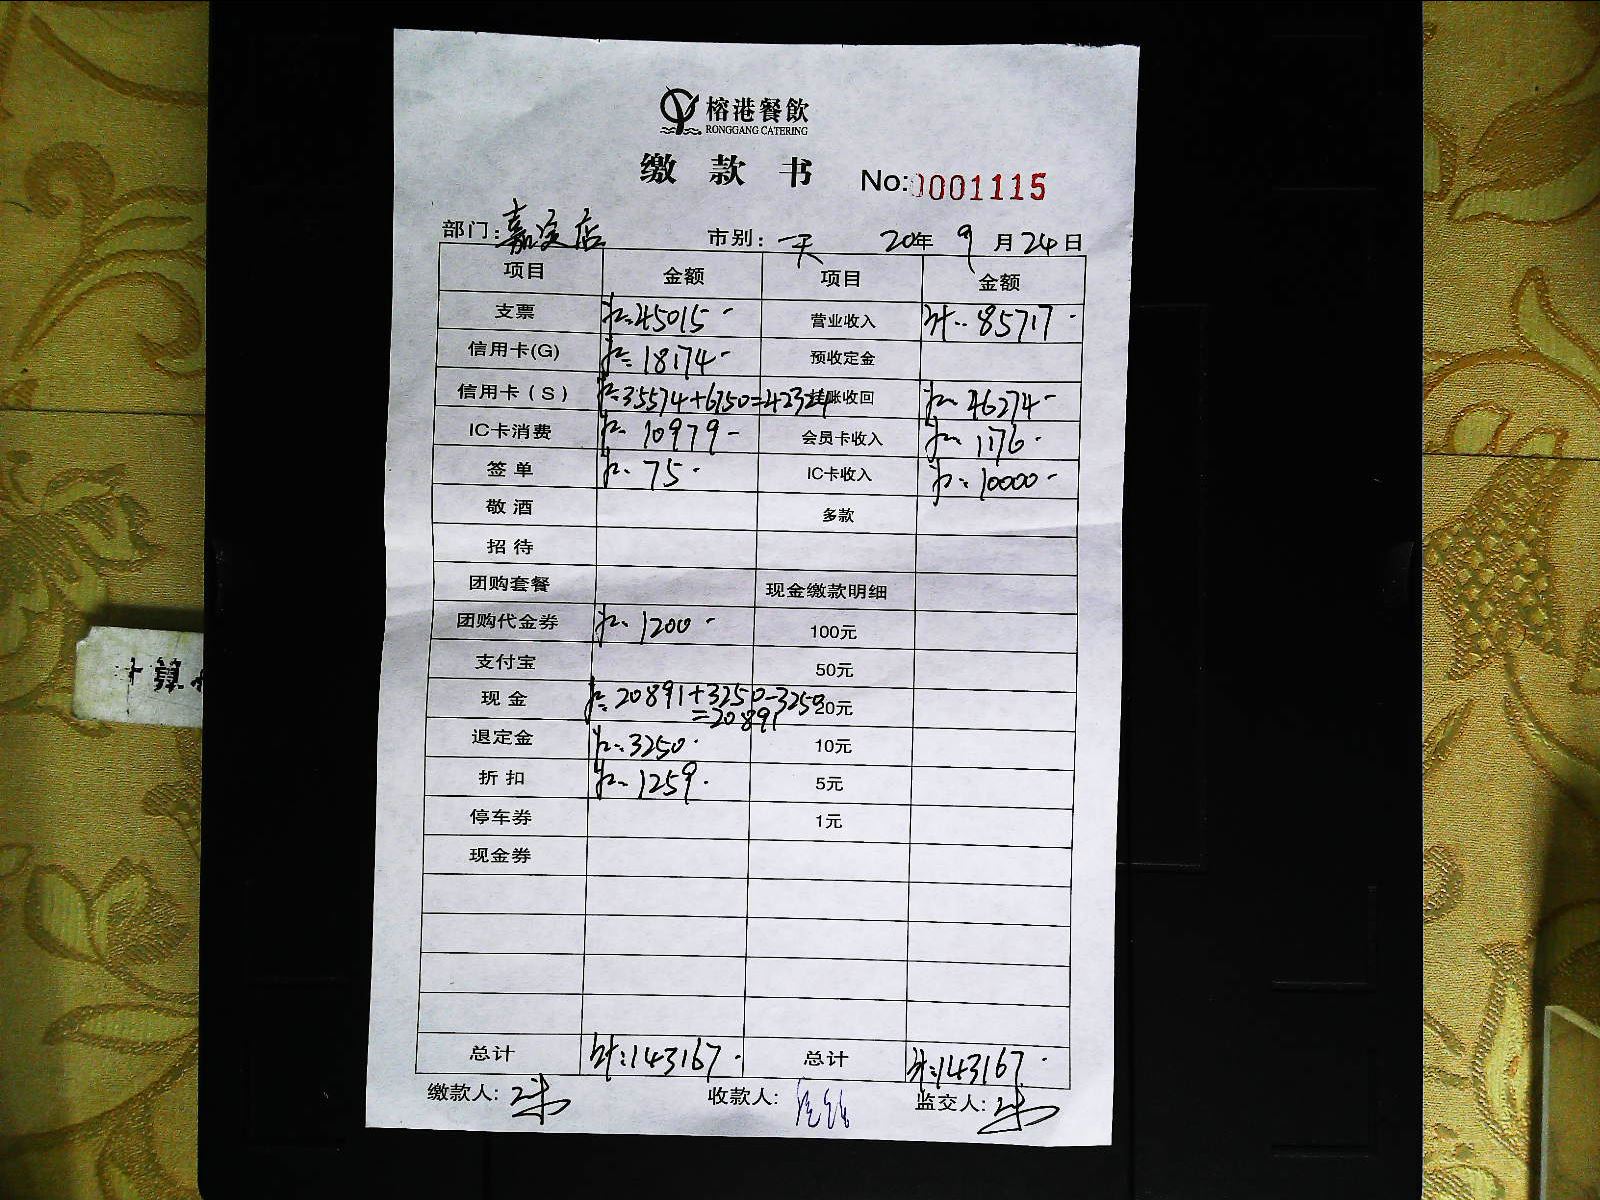 榕港餐飲
RONGGANG CATERING
缴款书 No:0001115
部门:嘉定店 市别:一天 20年9月24日
项目 金额 项目 金额
支票 45015- 营业收入 计:85717-
信用卡(G) 18174- 预收定金
信用卡(S) 35574+6750=42324 挂账收回 46274-
IC卡消费 10979- 会员卡收入 1176-
签单 75- IC卡收入 10000-
敬酒 多款
招待
团购套餐 现金缴款明细
团购代金券 1200- 100元
支付宝 50元
现金 20891+3250-3250 20元
=20891
退定金 3250- 10元
折扣 1259- 5元
停车券 1元
现金券
总计 计:143167- 总计 计:143167-
缴款人: 收款人: 监交人: